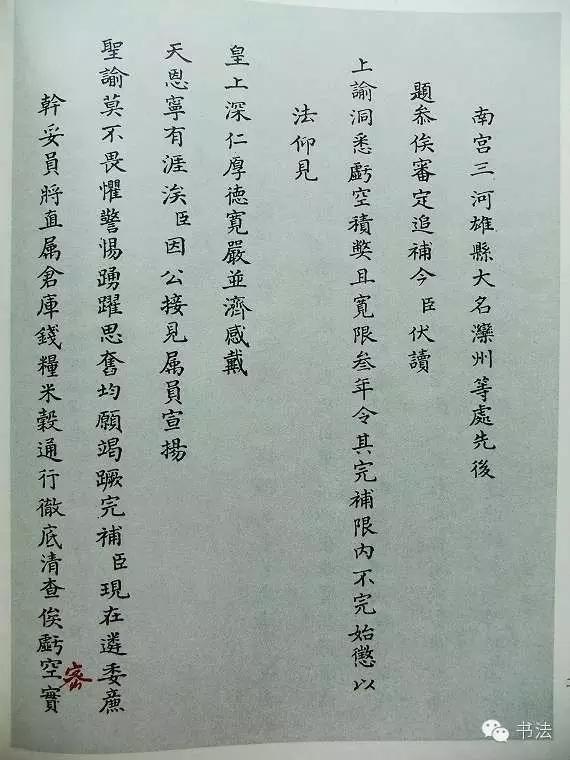 南宫三河雄縣大名灤州等處先後
題叅俟審定追補今臣伏讀
上諭洞悉虧空積獘且寬限叁年令其完補限內不完始懲以
法仰見
皇上深仁厚德寬嚴並濟感戴
天恩寧有涯涘臣因公接見属員宣揚
聖諭莫不畏懼警惕踴躍思奮均願竭蹶完補臣現在遴委廉
幹妥員將直属倉庫錢糧米穀通行徹底清查俟虧空實
密
书法